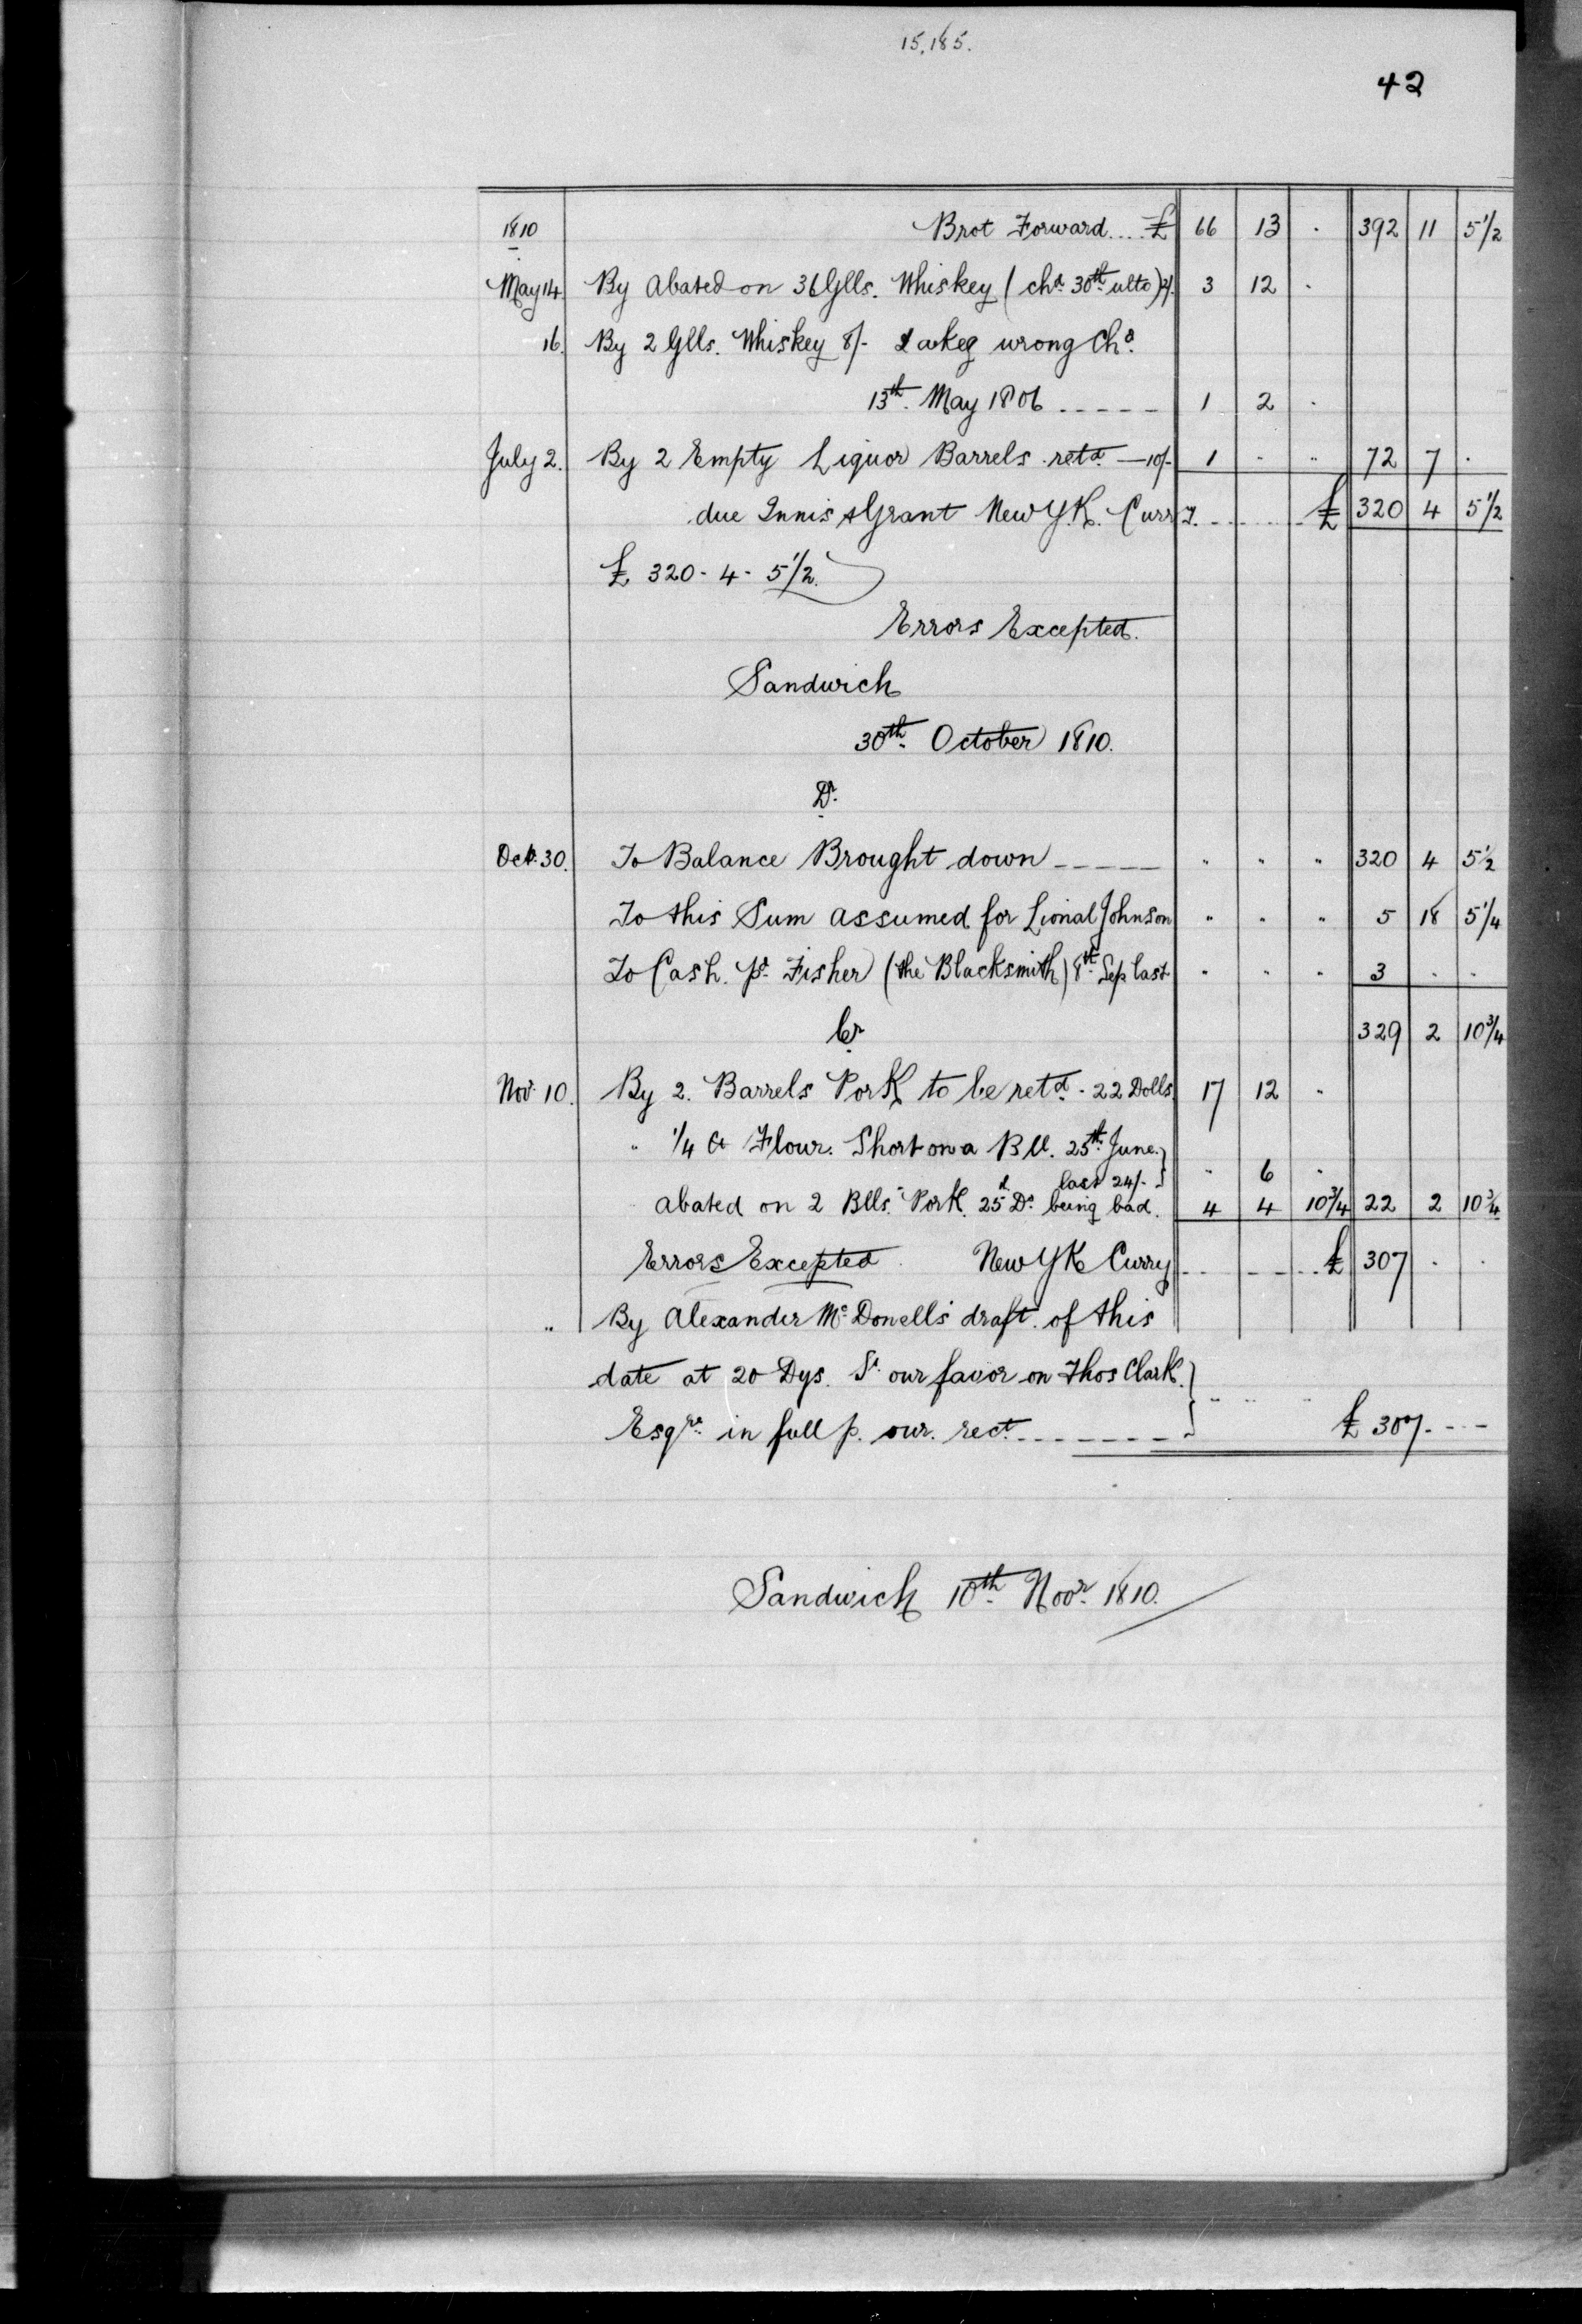 15,185.
42
1810 Brot Forward.... £ 66 13 . 392 11 5 1/2
May 14 By Abated on 36 Glls. Whiskey (chd. 30th ulto) 2/. 3 12 .
16. By 2 Glls. Whiskey 8/- & a keg wrong Chd.
13th. May 1806 ----- 1 2 .
July 2. By 2 Empty Liquor Barrels retd. — 10/- 1 .. .. 72 7 .
due Innis & Grant New Y.K. Curry. ...... £ 320 4 5 1/2
£ 320 - 4 - 5 1/2.
Errors Excepted.
Sandwich
30th. October 1810.
Dr.
Oct. 30. To Balance Brought down ----- " " " 320 4 5 1/2
To this Sum assumed for Lional Johnson " " " 5 18 5 1/4
To Cash. pd. Fisher (the Blacksmith) 8th. Sep last " " " 3 . .
Cr 329 2 10 3/4
Nov. 10. By 2. Barrels Pork to be retd. - 22 Dolls. 17 12 "
" 1/4 Ct Flour. Short on a Bll. 25th. June }
last 24/- } " 6 "
abated on 2 Blls. Pork. 25d Do. being bad. 4 4 10 3/4 22 2 10 3/4
Errors Excepted New YK Curry ------ £ 307 . .
" By Alexander Mc. Donell's draft of this
date at 20 Dys. St. our favor on Thos Clark. }
Esqre. in full p. our. rect. ------- } " " " £ 307. - --
Sandwich 10th. Novr. 1810.